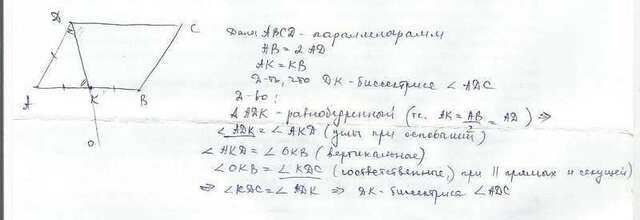 D
C
A
K
B
O
Дано: ABCD - параллелограмм
AB = 2 AD
AK = KB
Д-ть, что DK - биссектриса ∠ ADC
Д-во:
Δ ADK - равнобедренный (т.к. AK = AB/2 = AD) ⇒
∠ ADK = ∠ AKD (углы при основании)
∠ AKD = ∠ OKB (вертикальные)
∠ OKB = ∠ KDC (соответственные, при || прямых и секущей)
⇒ ∠ KDC = ∠ ADK ⇒ DK - биссектриса ∠ ADC